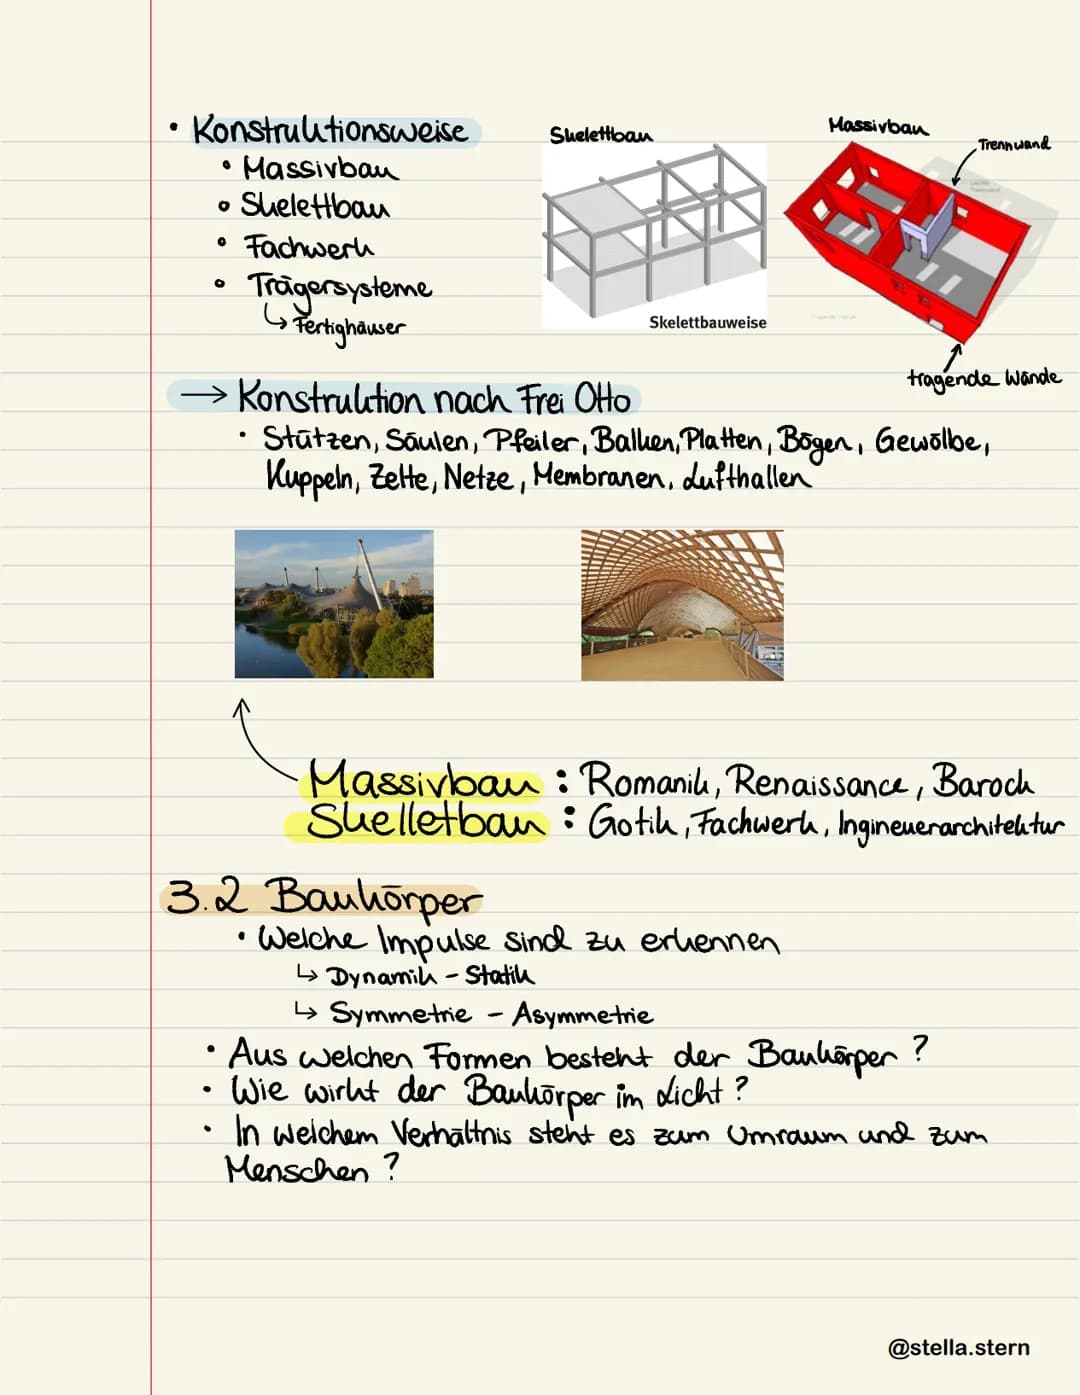 • Konstruktionsweise
• Massivbau
• Skelettbau
• Fachwerk
• Trägersysteme
↳ Fertighäuser
Skelettbau
Skelettbauweise
Massivbau
Trennwand
tragende Wände
→ Konstruktion nach Frei Otto
• Stützen, Säulen, Pfeiler, Balken, Platten, Bögen, Gewölbe,
Kuppeln, Zelte, Netze, Membranen, Lufthallen
Massivbau : Romanik, Renaissance, Barock
Skelletbau : Gotik, Fachwerk, Ingineuerarchitektur
3.2 Baukörper
• Welche Impulse sind zu erkennen
↳ Dynamik - Statik
↳ Symmetrie - Asymmetrie
• Aus welchen Formen besteht der Baukörper ?
• Wie wirkt der Baukörper im Licht ?
• In welchem Verhältnis steht es zum Umraum und zum
Menschen ?
@stella.stern